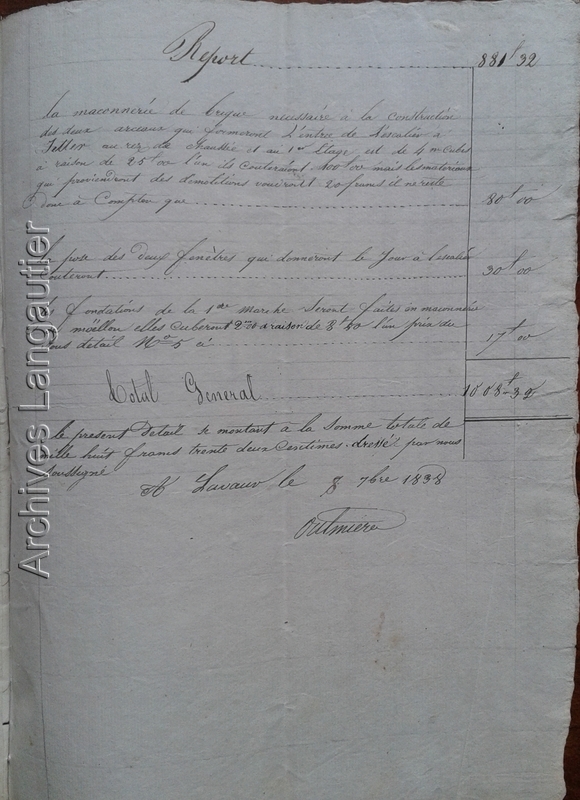 Report 881f 32
La maconnerie de brique necessaire à la construction
des deux arceaux qui formeront l'entrée de l'escalier à
au rez de Chaussée et au 1er Etage est de 4 m Cubes
à raison de 25f00 l'un ils Couteront 100f00 mais les materiaux
qui proviendront des demolitions voudront 20 francs il ne reste
donc à Compter que 80f 00
pose des deux fenêtres qui donneront le Jour à l'escalier
couteront 30f 00
fondations de la 1ere marche Seront faites en maconnerie
moillon elles Cuberont 2m00 a raison de 8f50 l'un prix du
sous detail No 5 ci 17f 00
Total General 1008f-32
le present Detail se montant à la Somme totale de
mille huit francs trente deux Centimes dressé par nous
soussigné
A Lavaur le 8 7bre 1838
Archives Langautier